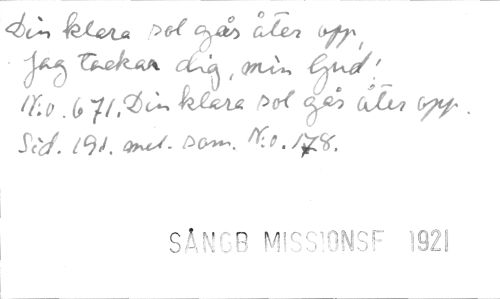 Din klara sol går åter opp,
Jag tackar dig, min Gud!
N:o. 671. Din klara sol går åter opp.
Sid. 191. mel. som. N:o. 178.
SÅNGB MISSIONSF 1921